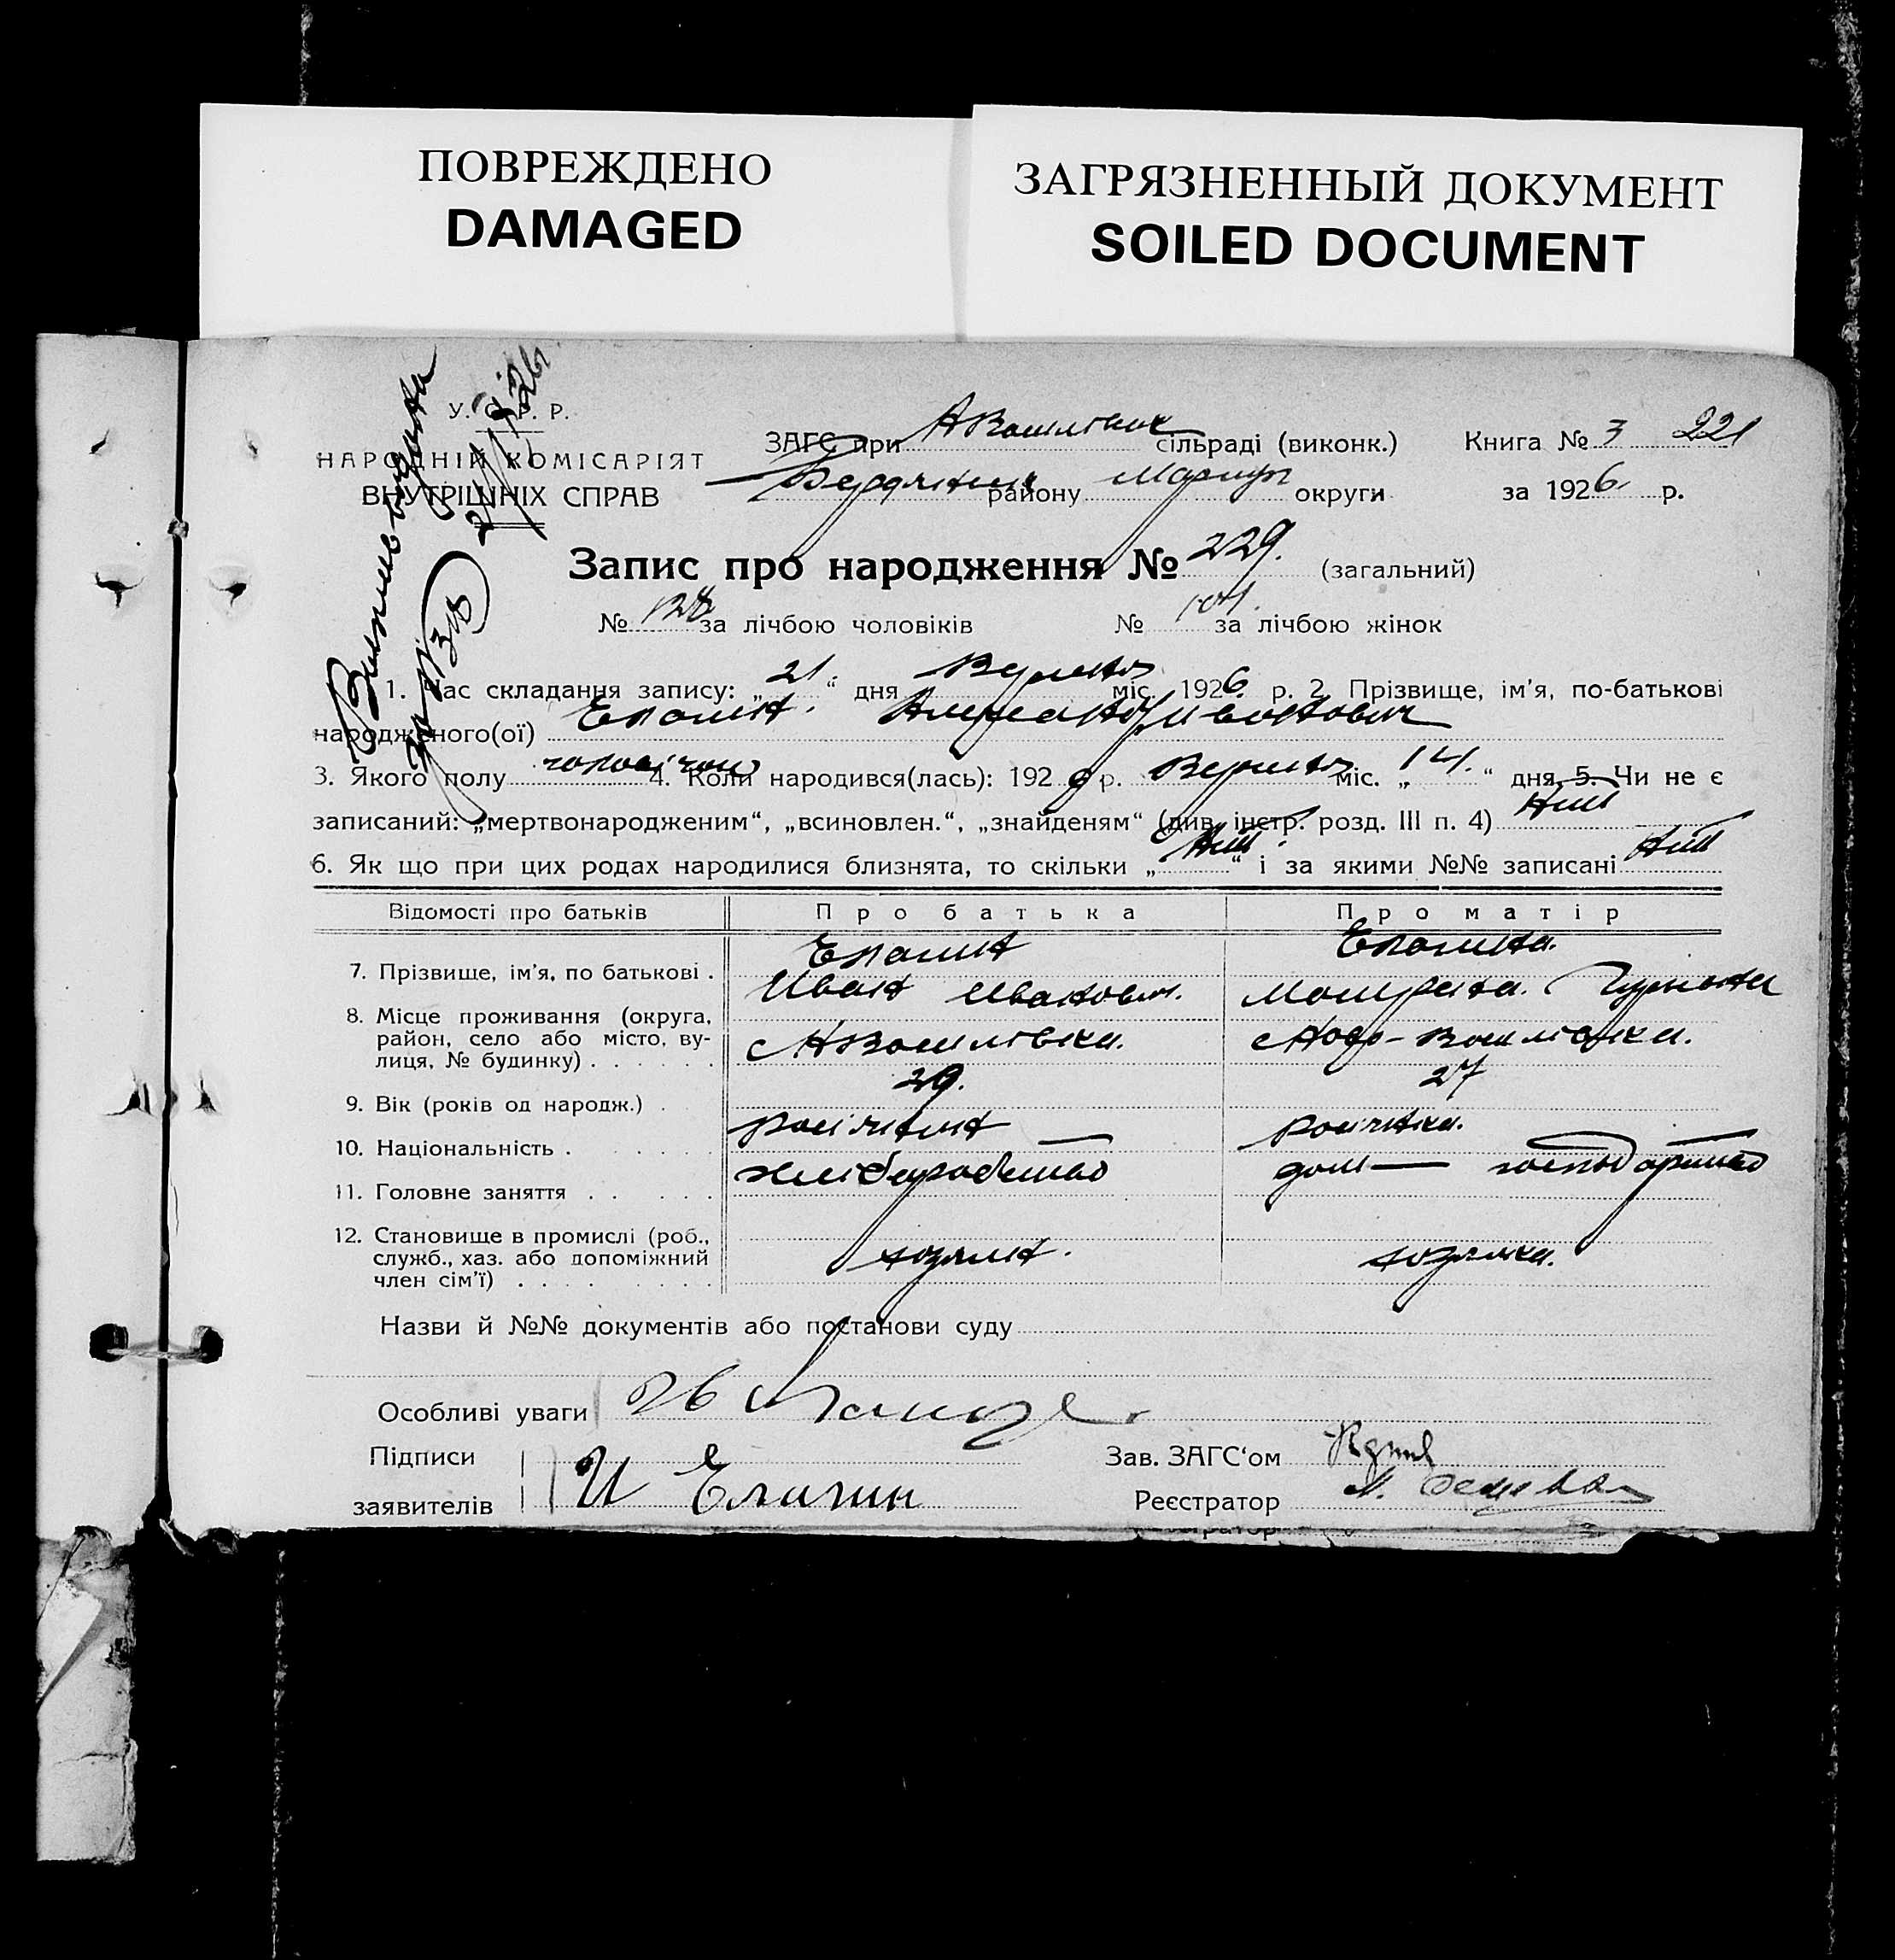 ПОВРЕЖДЕНО
DAMAGED
ЗАГРЯЗНЕННЫЙ ДОКУМЕНТ
SOILED DOCUMENT
У. С. Р. Р.
НАРОДНІЙ КОМІСАРІЯТ
ВНУТРІШНІХ СПРАВ
ЗАГС при сільраді (виконк.) Книга № 3 221
району Мариуп округи за 1926 р.
Запис про народження № 229. (загальний)
№ 128 за лічбою чоловіків № 101. за лічбою жінок
1. Час складання запису: „21.“ дня міс. 1926. р. 2. Прізвище, ім'я, по-батькові
народженого(ої) Елагин. Александр Иванович
3. Якого полу 4. Коли народився(лась): 192 р. міс. „14.“ дня. 5. Чи не є
записаний: „мертвонародженим“, „всиновлен.“, „знайденям“ (див. інстр. розд. III п. 4) Ній
6. Як що при цих родах народилися близнята, то скільки „Ній“ і за якими №№ записані Ній
Відомості про батьків Про батька Про матір
7. Прізвище, ім'я, по батькові . Елагин Елагина.
Иван Иванович.
8. Місце проживання (округа,
район, село або місто, ву-
лиця, № будинку) . . . . . .
с НВасилівка. с Ново-Василівка.
9. Вік (років од народж.) . 29. 27
10. Національність . . . . . . росіянин росіянка.
11. Головне заняття . . . . . хліборобство дом— господарство
12. Становище в промислі (роб.,
служб., хаз. або допоміжний
член сім'ї) . . . . . . . . .
хозяин. хозяйка.
Назви й №№ документів або постанови суду
Особливі уваги
Підписи
заявителів И Елагин
Зав. ЗАГС'ом
Реєстратор